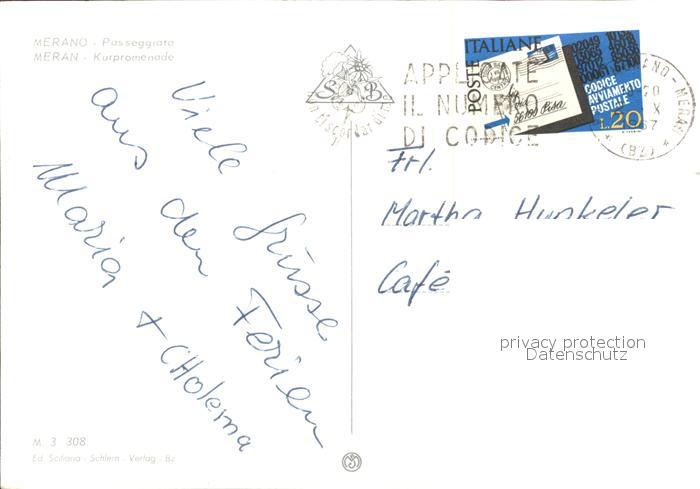 MERANO - Passeggiata
MERAN - Kurpromenade
Viele Grüsse
aus den Ferien
Maria +
M. 3 308
Ed. Sciliana - Schlern - Verlag - Bz
S B
APPLICATE
IL NUMERO
DI CODICE
POSTE ITALIANE
CODICE
AVVIAMENTO
POSTALE
L.20
56100 Pisa
MERANO - MERAN
X
67
* (BZ) *
Frl.
Martha Hunkeler
Café
privacy protection
Datenschutz